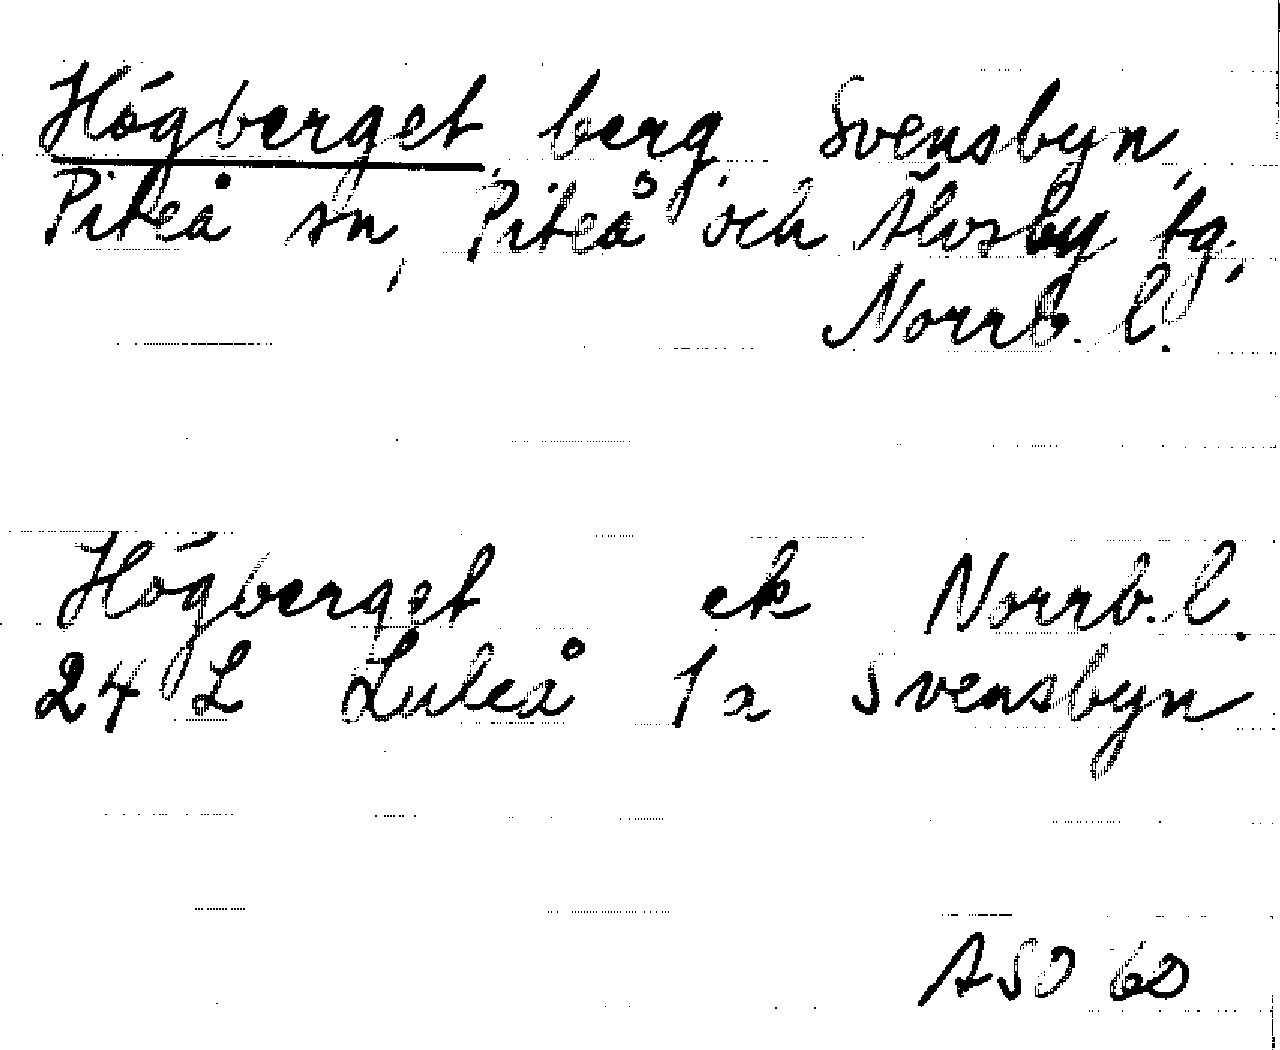 Högberget, berg, Svensbyn,
Piteå sn, Piteå och Älvsby tg,
Norrb. l.
Högberget ek Norrb. l.
24 L Luleå 1 a Svensbyn
ASO 60